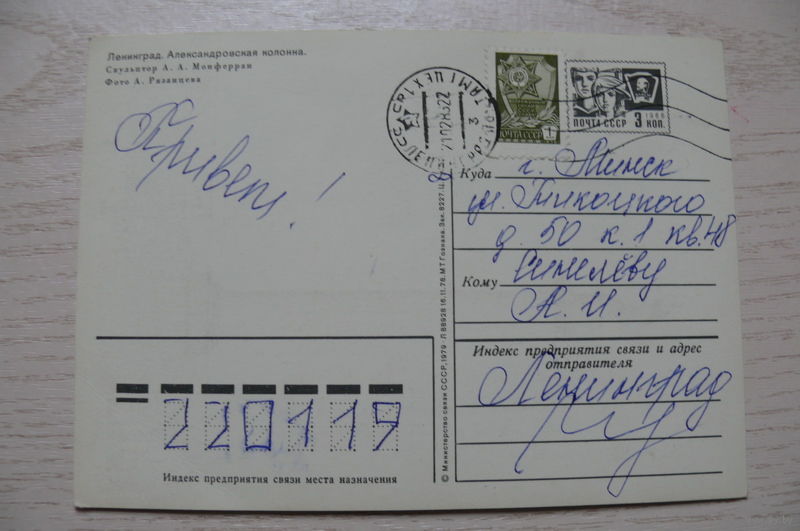 Ленинград. Александровская колонна.
Скульптор А. А. Монферран
Фото А. Рязанцева
Привет!
ПОЧТА СССР
1
ПОЧТА СССР
1966
3 КОП.
Куда г. Минск
ул. Тикоцкого
д. 50 к. 1 кв. 48
Кому Синилёву
А. И.
Индекс предприятия связи и адрес
отправителя
Ленинград
220119
Индекс предприятия связи места назначения
© Министерство связи СССР, 1979 Л 88928 16.11.78. МТ Гознака. Зак. 8227. Ц.